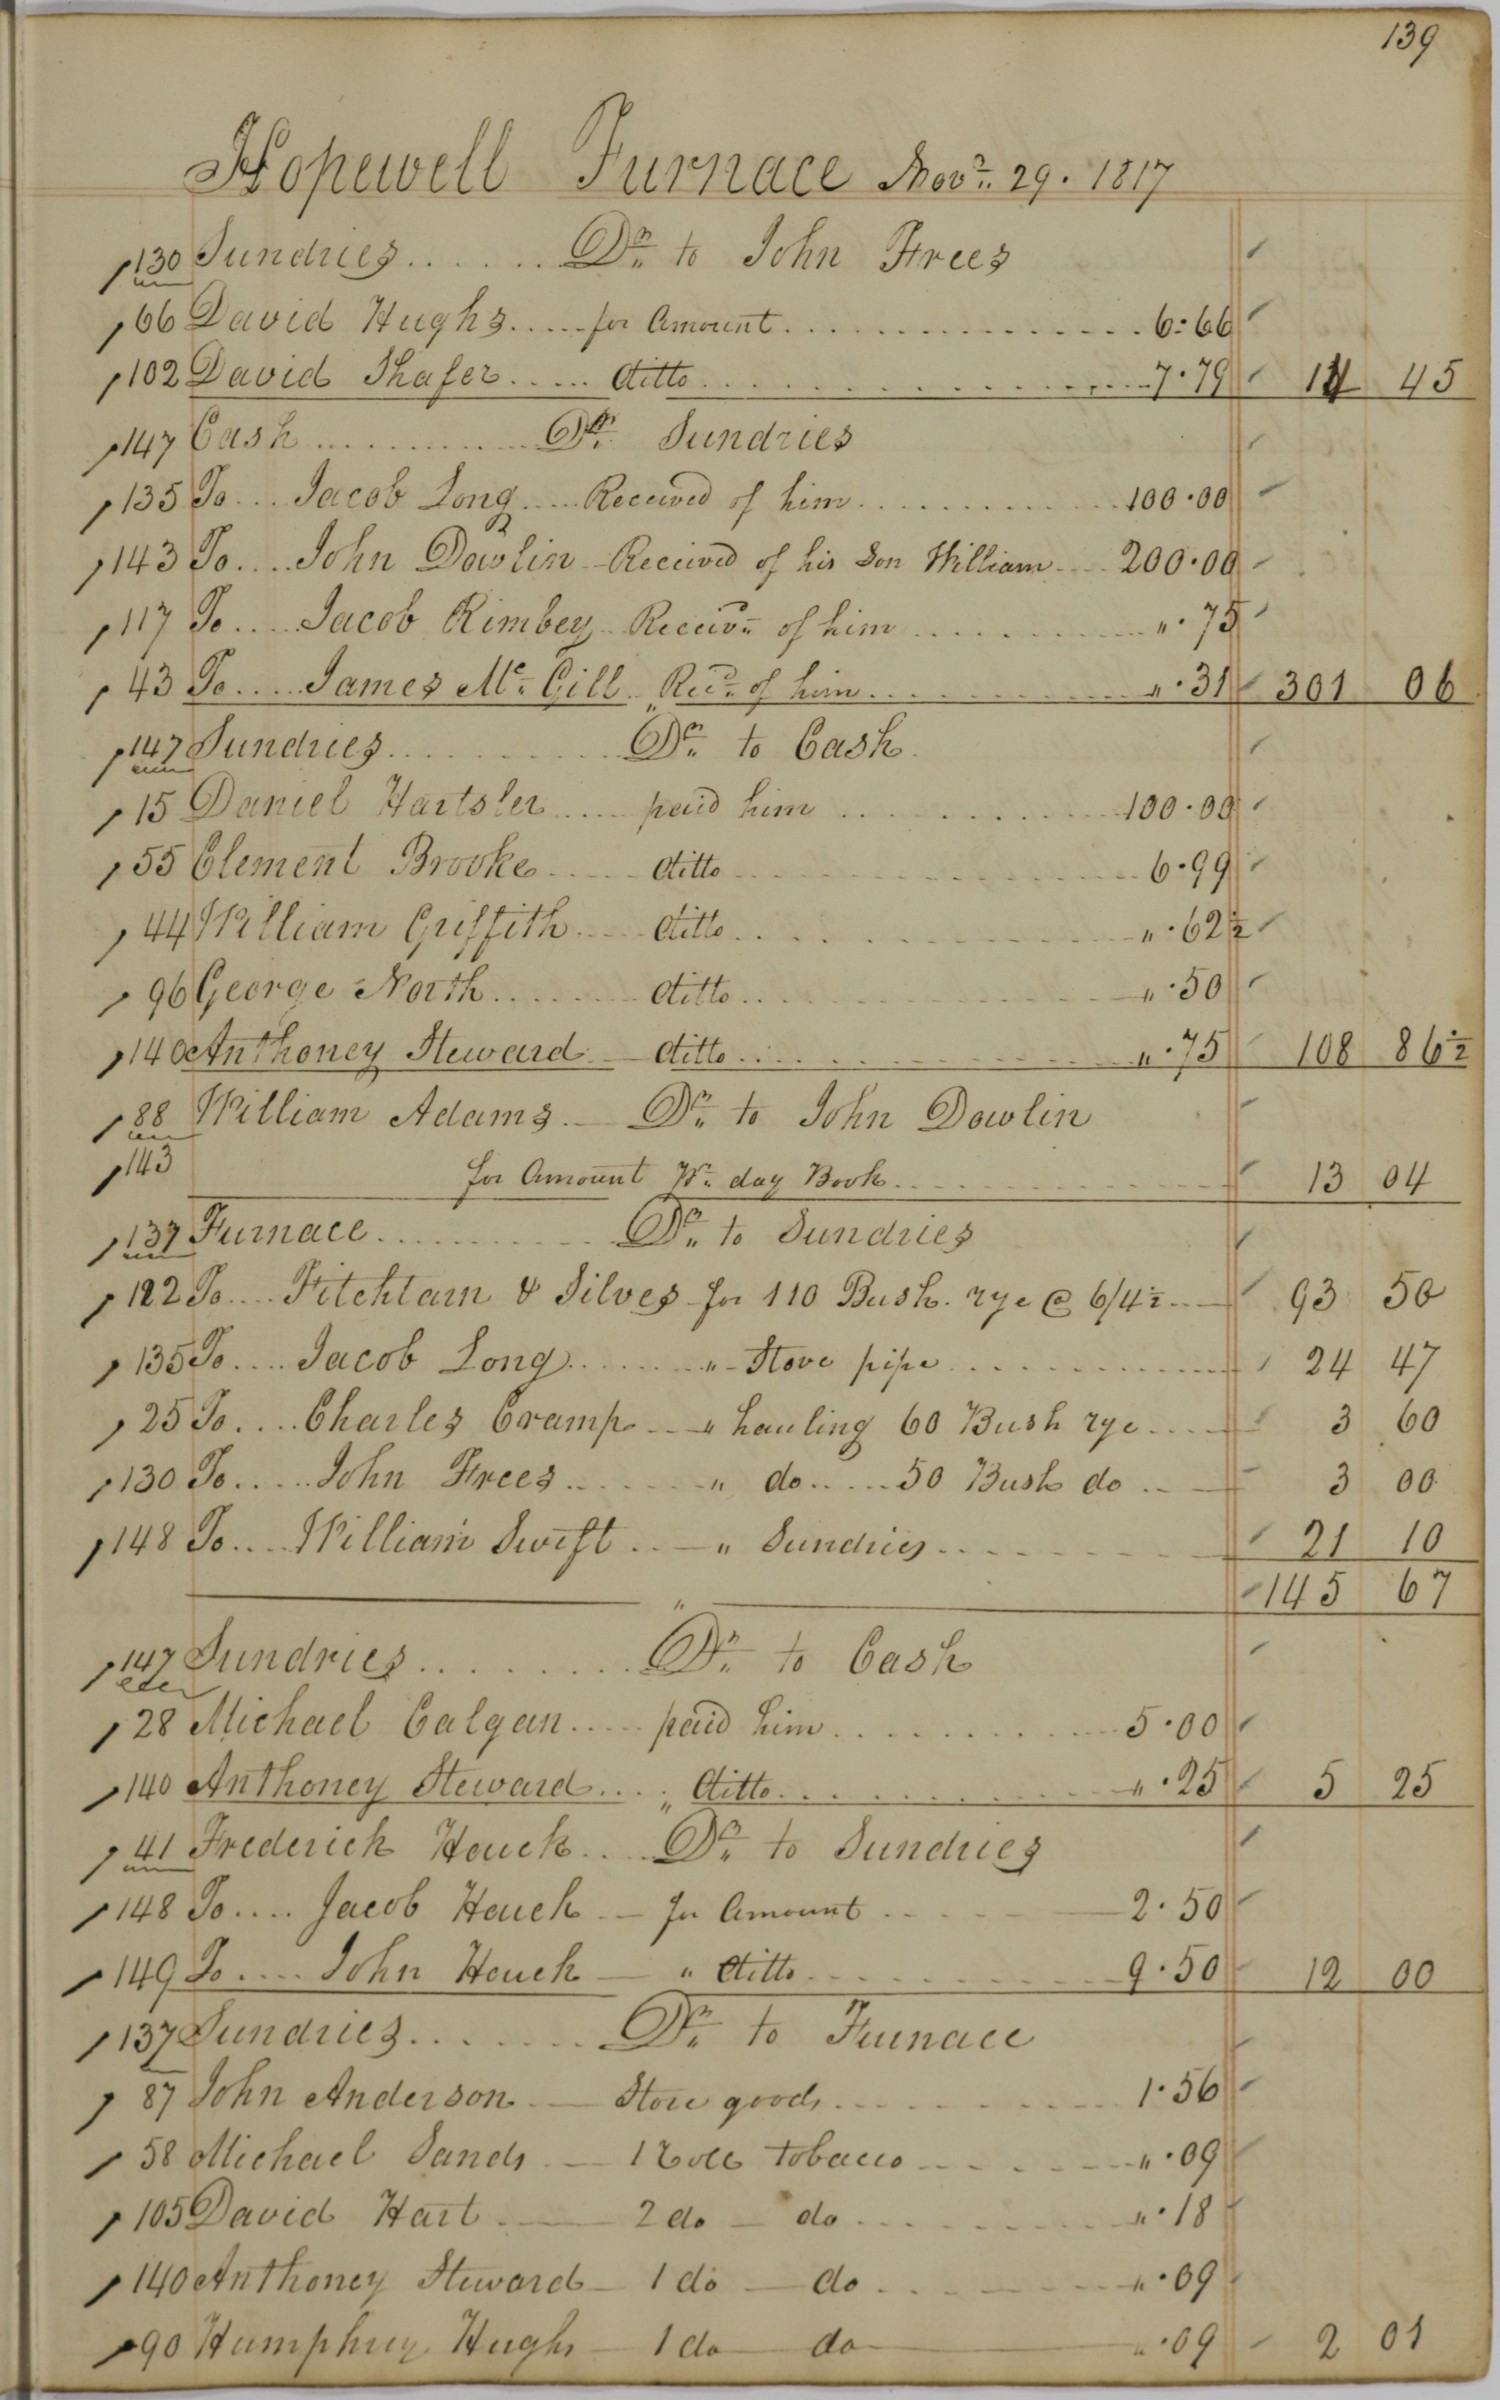 139
Hopewell Furnace Novr. 29. 1817
130 Sundries ....... Dr. to John Frees
66 David Hughs ..... for Amount ............... 6.66
102 David Shafer ..... ditto ............... 7.79 14 45
147 Cash ............ Dr. Sundries
135 To .... Jacob Long ..... Received of him ............ 100.00
143 To .... John Dowlin - Received of his Son William .... 200.00
117 To .... Jacob Kimbey Receivd. of him ............ ".75
43 To .... James Mc. Gill Recd. of him ............ ".31 301 06
147 Sundries ............ Dr. to Cash.
15 Daniel Hartsler ..... paid him ............ 100.00
55 Clement Brooke ..... ditto ............ 6.99
44 William Griffith .... ditto ............ ".62½
96 George North ....... ditto ............ ".50
140 Anthoney Steward - ditto ............ ".75 108 86½
88 William Adams - Dr. to John Dowlin
143 for Amount Pr. day Book ............ 13 04
137 Furnace ............ Dr. to Sundries
122 To .... Fitchtarn & Silves for 110 Bush. rye @ 6/4½ .... 93 50
135 To .... Jacob Long ....... " Stove pipe ............ 24 47
25 To .... Charles Cramp ... " hauling 60 Bush rye .... 3 60
130 To ..... John Frees ....... " do ..... 50 Bush do .... 3 00
148 To .... William Swift ... " Sundries ............ 21 10
" 145 67
147 Sundries ......... Dr. to Cash
28 Michael Calgan ..... paid him ............ 5.00
140 Anthoney Steward .... " ditto ............ ".25 5 25
41 Frederick Houck .... Dr. to Sundries
148 To .... Jacob Houck - for Amount ........ 2.50
149 To .... John Houck - " ditto ............ 9.50 12 00
137 Sundries ........ Dr. to Furnace
87 John Anderson - Store goods ............ 1.56
58 Michael Sands - 1 Roll tobacco ........ ".09
105 David Hart - 2 do - do ............ ".18
140 Anthoney Steward - 1 do - do ............ ".09
90 Humphrey Hughs - 1 do - do - ".09 2 01